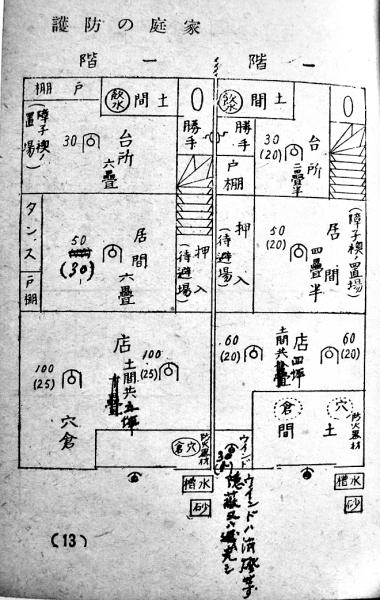 家庭の防護
一階
一階
戸棚
飲水
土間
(障子襖ノ置場)
30
台所
六疊
勝手
タンス
戸棚
50
(30)
居間
六疊
押入
(待避場)
店
土間共
100
(25)
100
(25)
穴倉
穴倉
防火器材
水槽
砂
飲水
土間
勝手
戸棚
30
(20)
台所
二疊半
押入
(待避場)
50
(20)
居間
四疊半
(障子襖ノ置場)
60
(20)
店
土間共四坪
60
(20)
穴倉
土間
ウインド
防火器材
水槽
砂
ウインドハ消燈セズ
隠蔽又ハ遮光シ
(13)